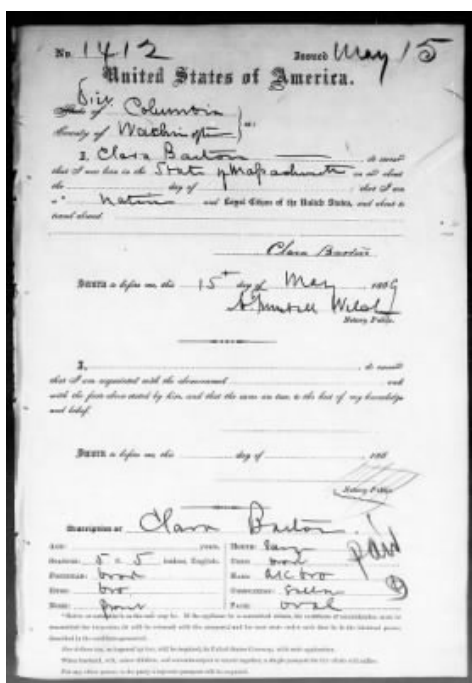 No. 1412 Issued May 15
United States of America.
Dist. of Columbia
County of Washington } ss:
I, Clara Barton, do swear
that I was born in the State of Massachusetts on or about
the day of ; that I am
a Native and Loyal Citizen of the United States, and about to
travel abroad.
Clara Barton
Sworn to before me, this 15th day of May 1869
Notary Public.
I, , do swear
that I am acquainted with the above-named and
with the facts above stated by him, and that the same are true to the best of my knowledge
and belief.
Sworn to before me, this day of 186
Notary Public.
Description of Clara Barton
Age: years. Mouth: Large
Stature: 5 ft. 5 inches, English. Chin:
Forehead: broad Hair:
Eyes: bro Complexion:
Nose: Face: Oval
paid